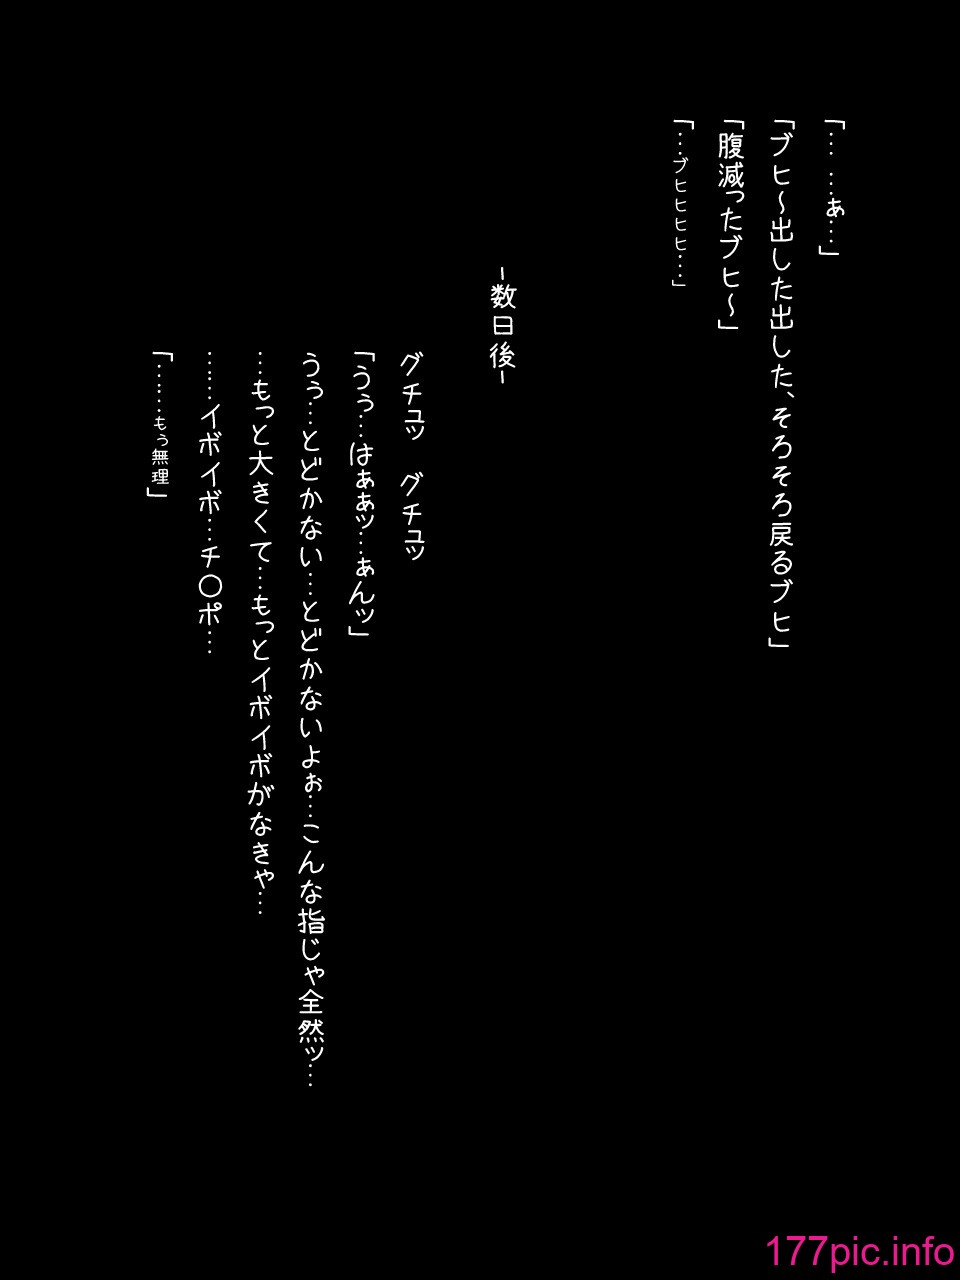 「… …あ…」
「ブヒ～出した出した、そろそろ戻るブヒ」
「腹減ったブヒ～」
「…ブヒヒヒヒ…」
-数日後-
グチュッ　グチュッ
「うぅ…はぁぁッ…ぁんッ」
うぅ…とどかない…とどかないよぉ…こんな指じゃ全然ッ…
…もっと大きくて…もっとイボイボがなきゃ…
……イボイボ…チ〇ポ…
「……もぅ無理」
177pic.info